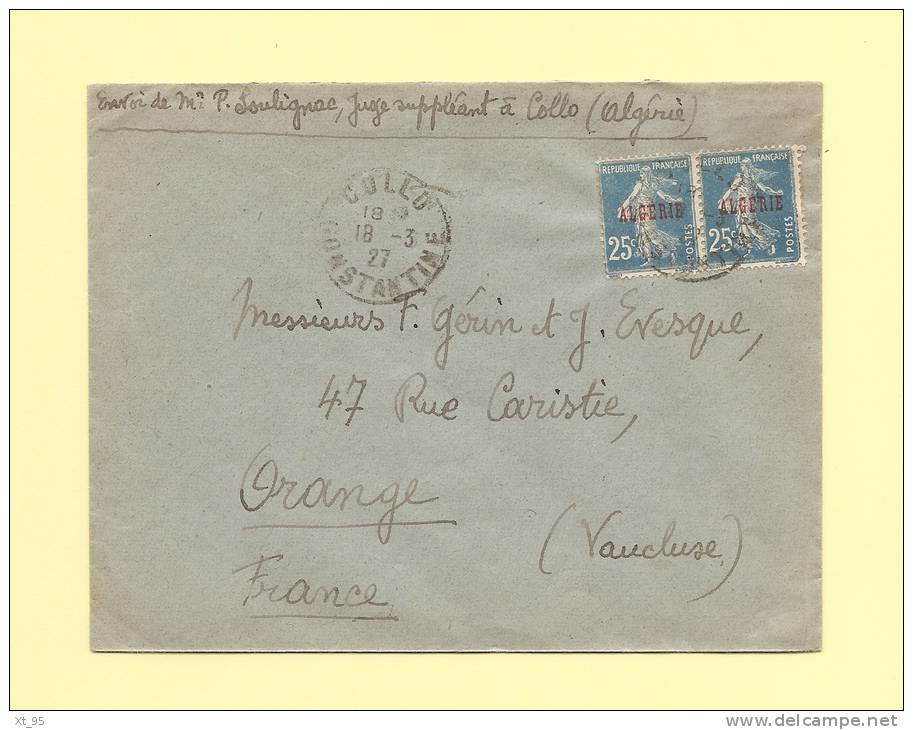 Envoi de Mr P. Soulignac, Juge suppléant à Collo (Algérie)
RÉPUBLIQUE FRANÇAISE
ALGÉRIE
25c
POSTES
RÉPUBLIQUE FRANÇAISE
ALGÉRIE
25c
POSTES
COLLO
18
18 -3
27
CONSTANTINE
Messieurs F. Gérin et J. Evesque,
47 Rue Caristie,
Orange
(Vaucluse)
France
Xt_95
delcampe.net